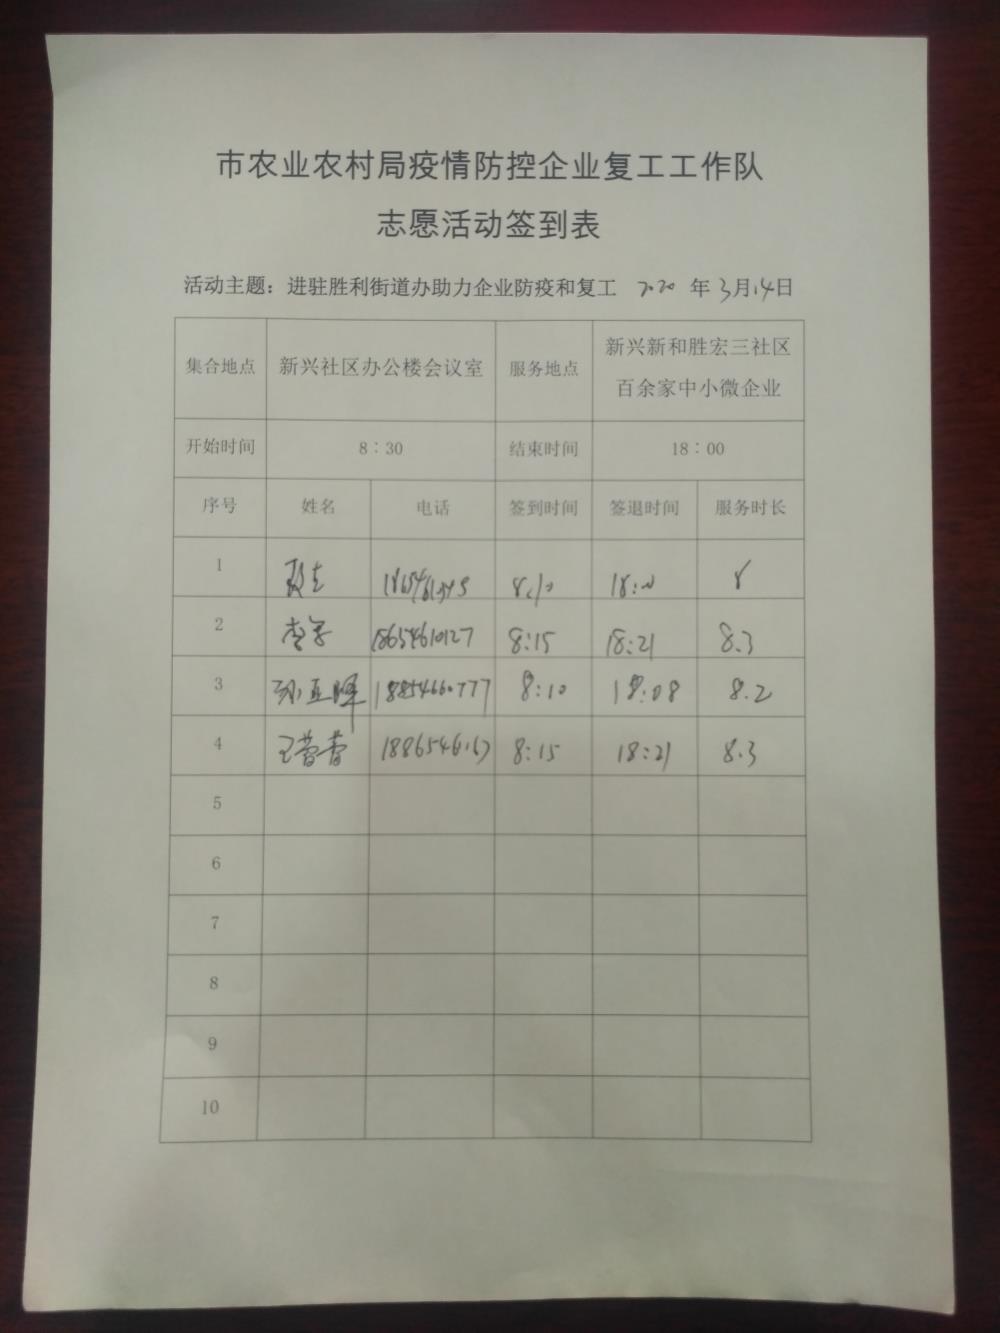 市农业农村局疫情防控企业复工工作队
志愿活动签到表
活动主题：进驻胜利街道办助力企业防疫和复工 2020 年 3月14日
集合地点 新兴社区办公楼会议室 服务地点 新兴新和胜宏三社区
百余家中小微企业
开始时间 8：30 结束时间 18：00
序号 姓名 电话 签到时间 签退时间 服务时长
1 8:10 18:00 8
2 18654610127 8:15 18:21 8.3
3 孙亚晖 18854660777 8:10 18:08 8.2
4 8:15 18:21 8.3
5
6
7
8
9
10